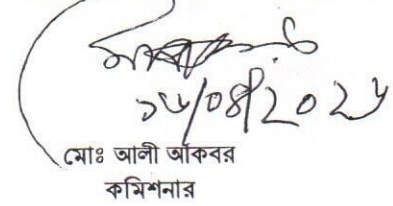 ১৬/০৪/২০২৬
মোঃ আলী আকবর
কমিশনার